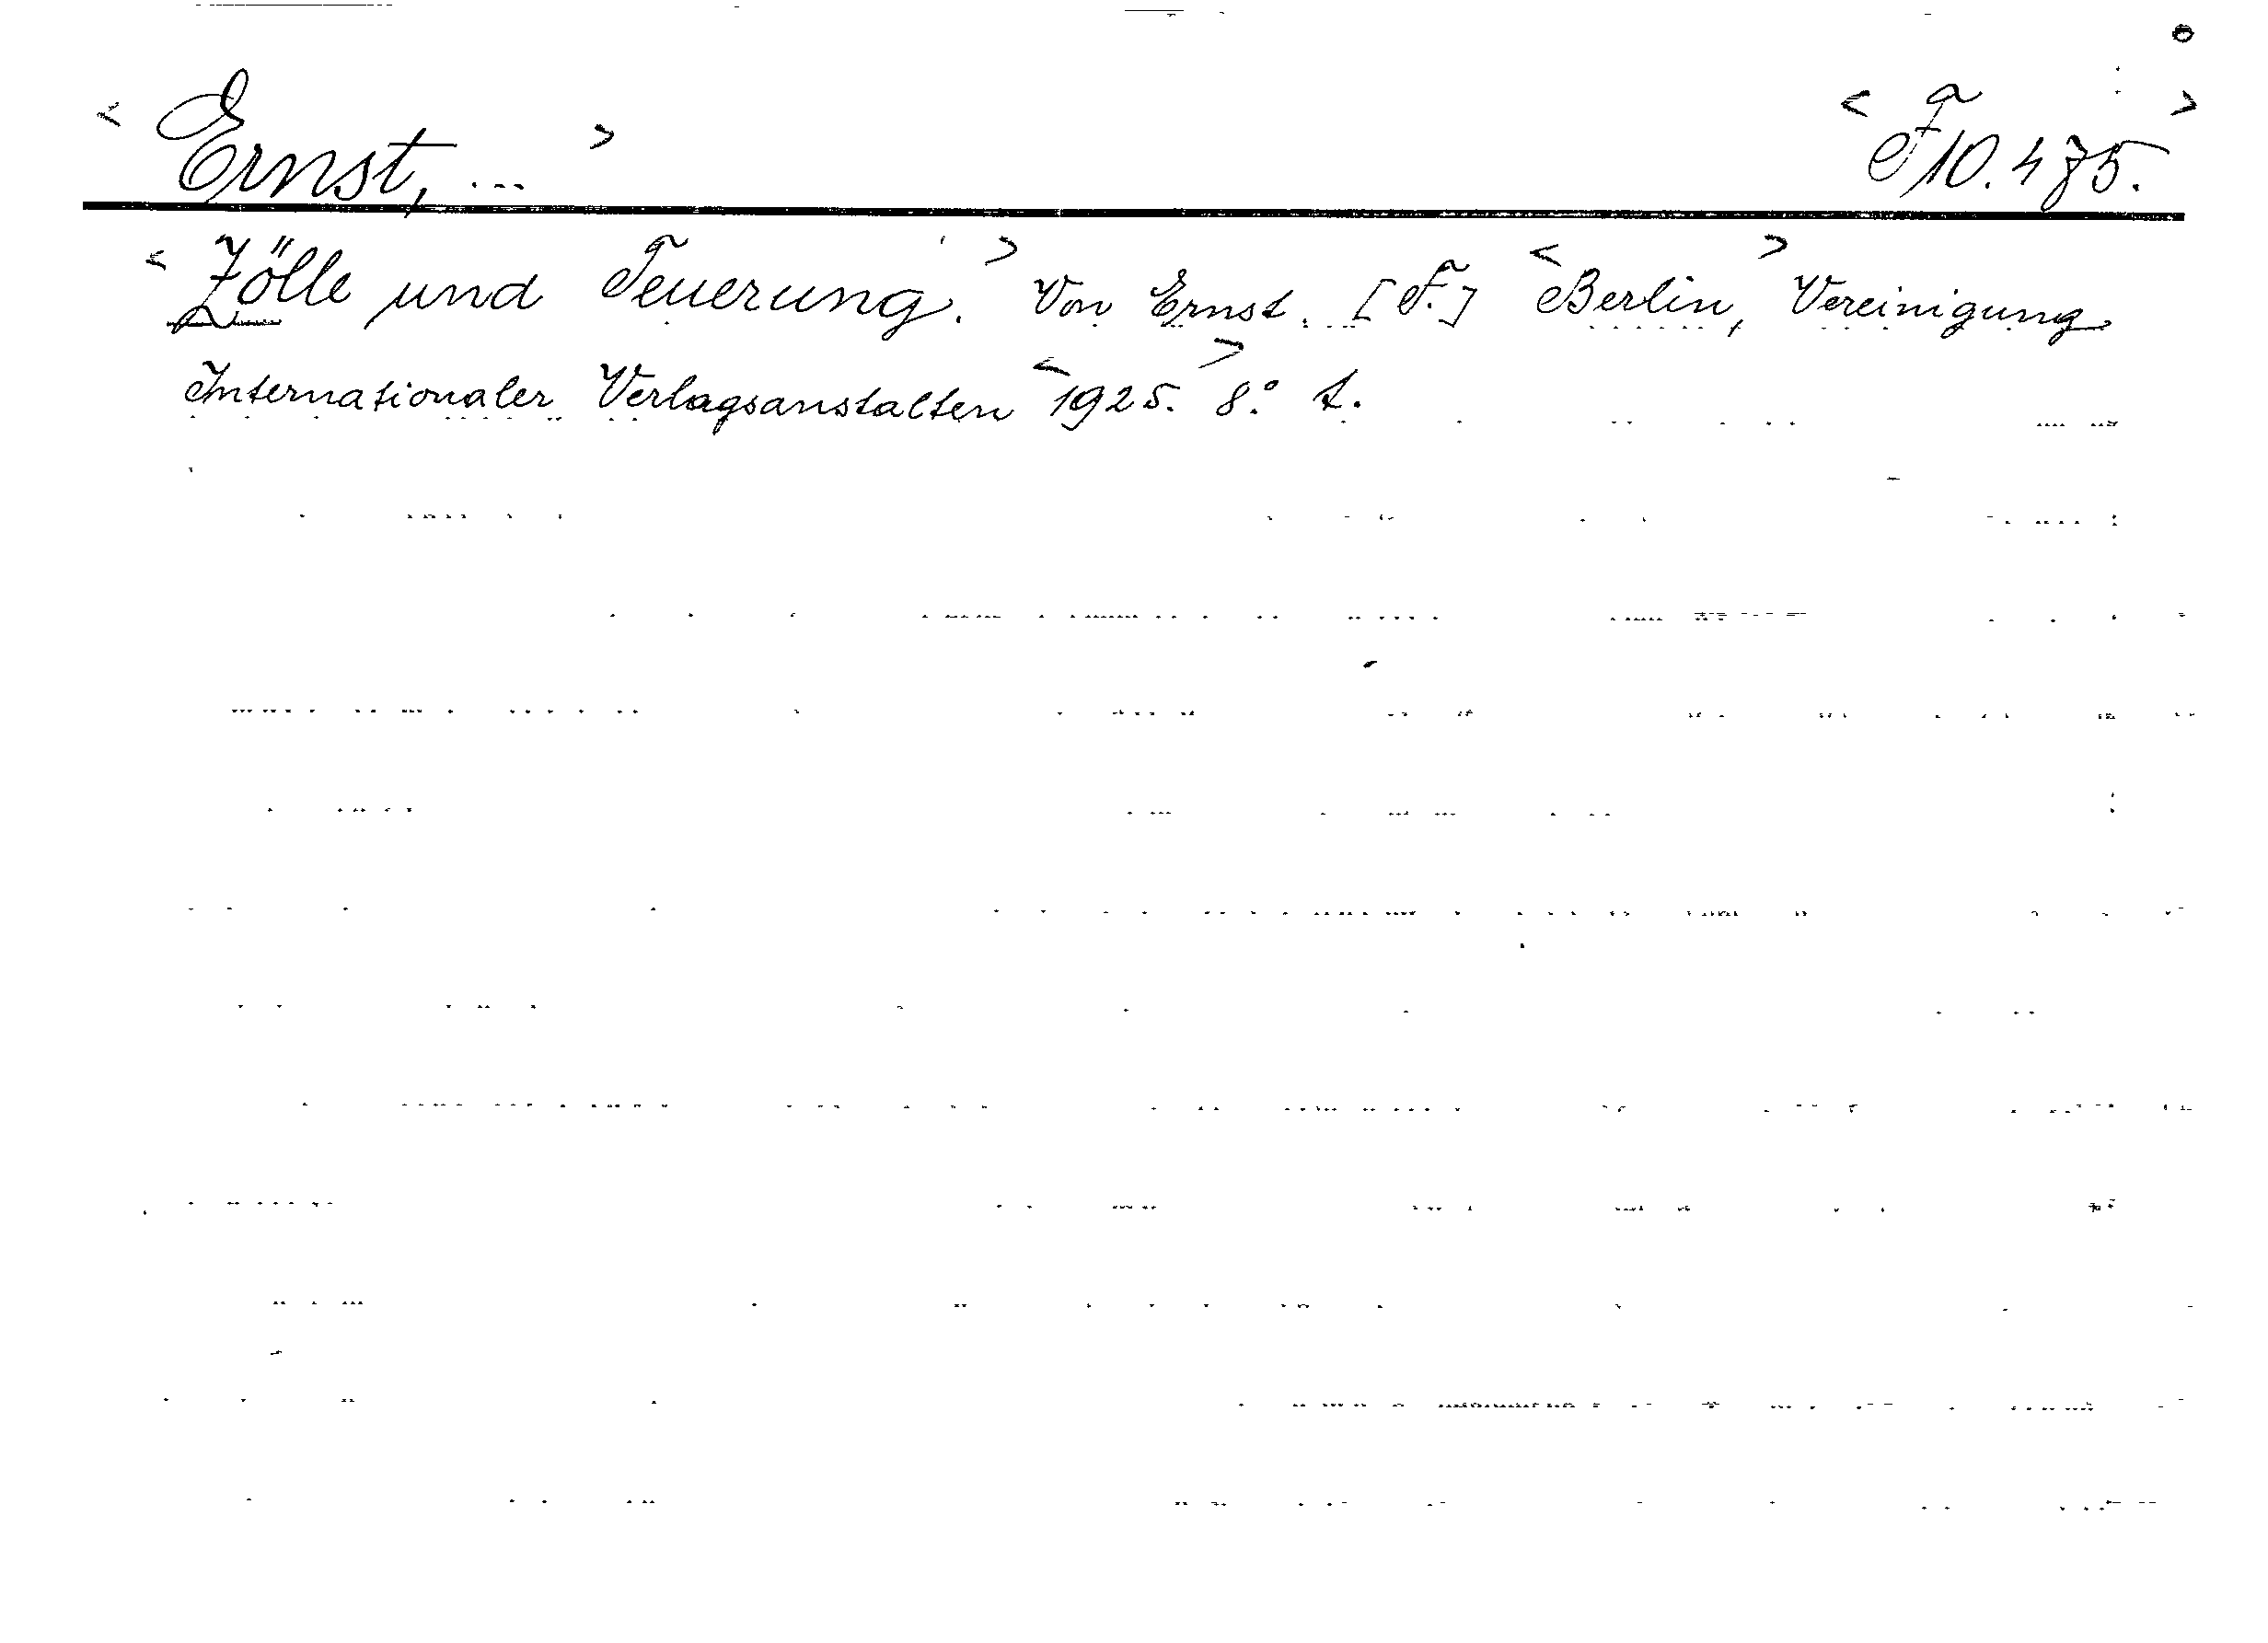 < Ernst, ... > < F 10.475. >
< Zölle und Teuerung. > Von Ernst. [F.] < Berlin, > Vereinigung
Internationaler Verlagsanstalten < 1925. > 8.°